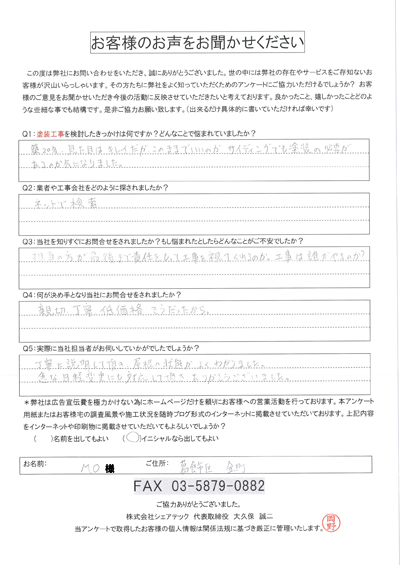 お客様のお声をお聞かせください
この度は弊社にお問い合わせをいただき、誠にありがとうございました。世の中には弊社の存在やサービスをご存知ないお
客様が沢山いらっしゃいます。その方たちに弊社をよく知っていただくためのアンケートにご協力いただけるでしょうか? お
客様のご意見をお聞かせいただき今後の活動に反映させていただきたいと考えております。良かったこと、嬉しかったことどのよ
うな些細な事でも結構です。是非ご協力お願い致します。(出来るだけ具体的に書いていただければ幸いです)
Q1:塗装工事を検討したきっかけは何ですか?どんなことで悩まれていましたか?
築20年、見た目はキレイだがこのままでいいのか サイディングでも塗装の必要が
あるのか気になりました。
Q2:業者や工事会社をどのように探されましたか?
ネットで検索
Q3:当社を知りすぐにお問合せをされましたか?もし悩まれたとしたらどんなことがご不安でしたか?
担当の方が最後まで責任を持って工事を視てくれるのか。工事は誰がやるのか?
Q4:何が決め手となり当社にお問合せをされましたか?
親切、丁寧、低価格 そうだったから。
Q5:実際に当社担当者がお伺いしていかがでしたでしょうか?
丁寧に説明して頂き、屋根の状態がよくわかりました。
急な日程変更にも対応して頂き、ありがとうございました。
*弊社は広告宣伝費を極力かけない為にホームページだけを頼りにお客様への営業活動を行っております。本アンケート
用紙またはお客様宅の調査風景や施工状況を随時ブログ形式のインターネットに掲載させていただいております。上記内容
をインターネットや印刷物に掲載させていただいてもよろしいでしょうか?
( )名前を出してもよい (○)イニシャルなら出してもよい
お名前: M.O 様 ご住所: 葛飾区 金町
FAX 03-5879-0882
ご協力ありがとうございました。
株式会社シェアテック 代表取締役 大久保 誠二
当アンケートで取得したお客様の個人情報は関係法規に基づき厳正に管理いたします。
岡野